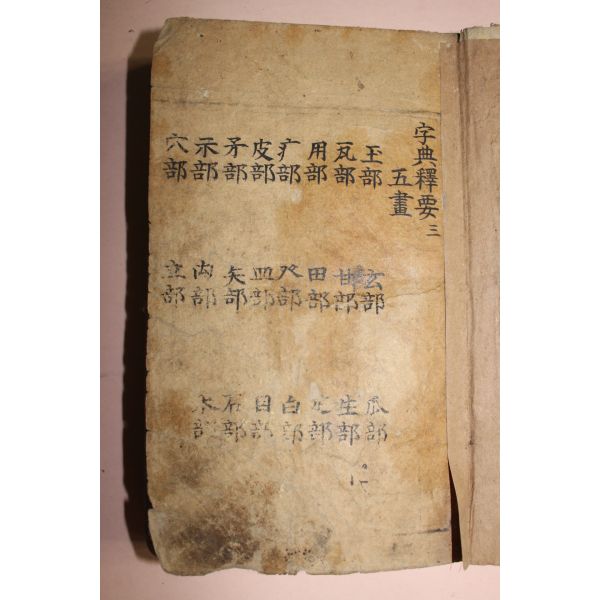 字典釋要 三
五畫
玉部 玄部 瓜部
瓦部 甘部 生部
用部 田部 疋部
疒部 癶部 白部
皮部 皿部 目部
矛部 矢部 石部
示部 禸部 禾部
穴部 立部